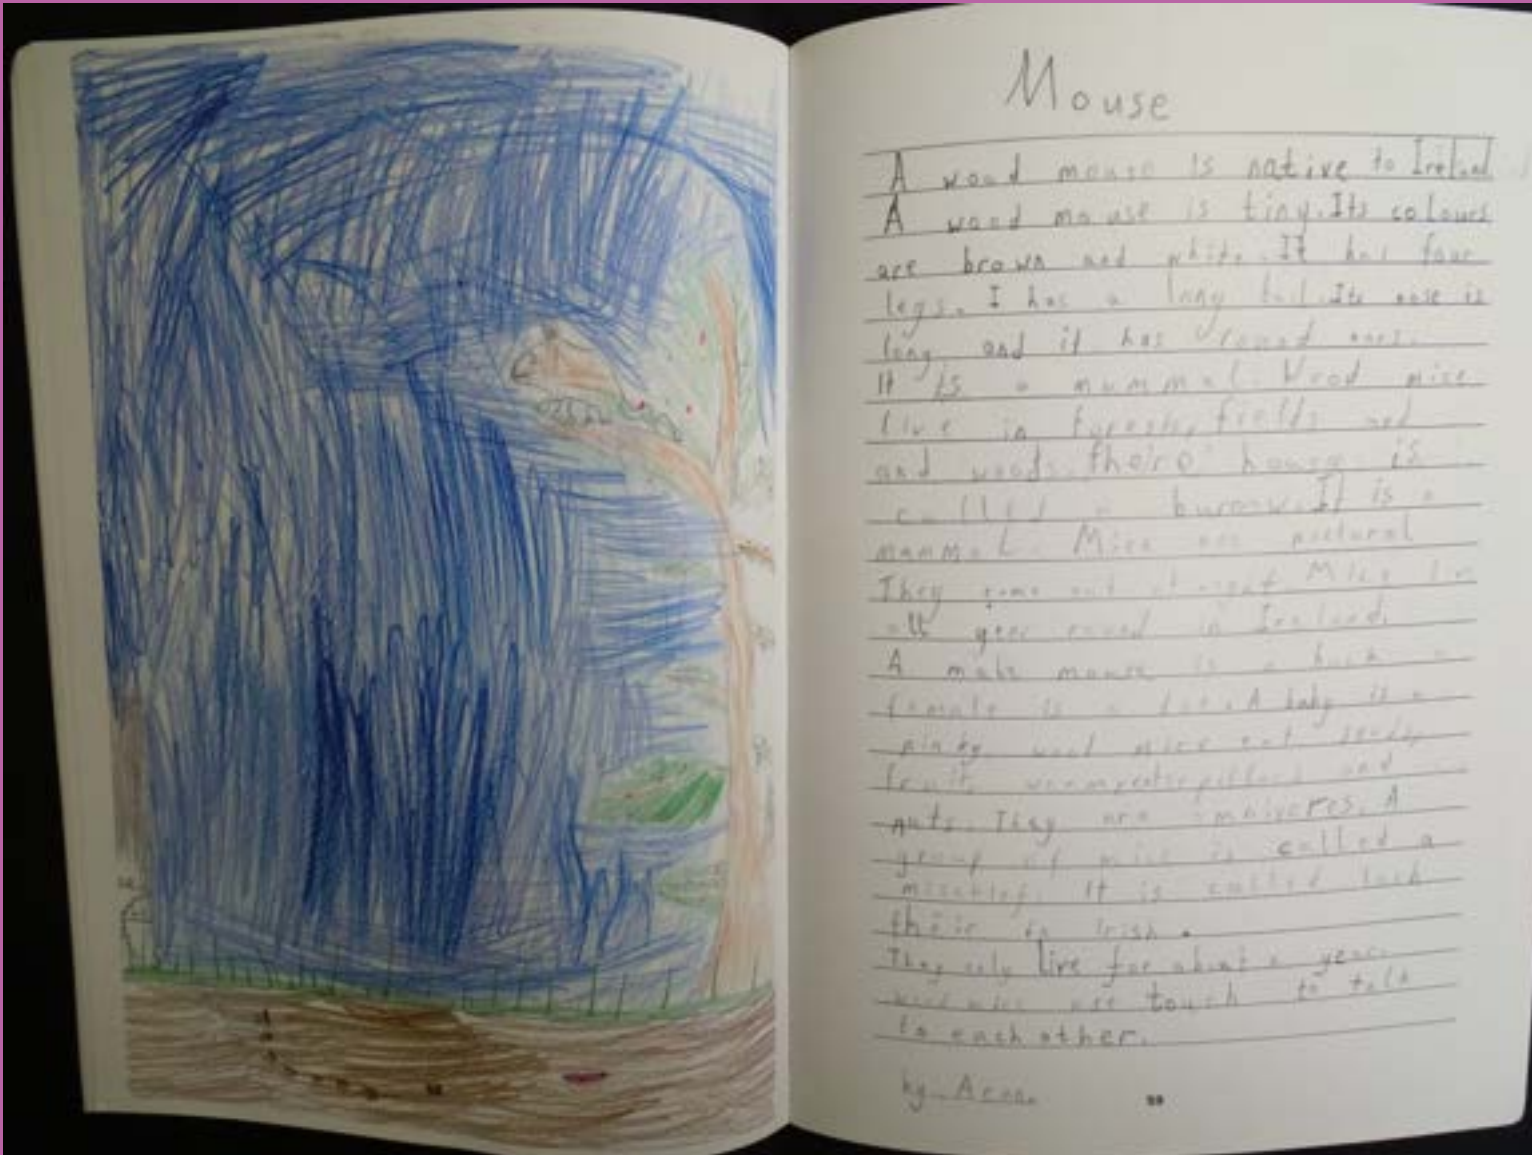 Mouse
A wood mouse is native to Ireland
A wood mouse is tiny. Its colours
are brown and white. It has four
legs. I has a long tail. Its nose is
long and it has round ears.
It is a mammal. Wood mice
live in forests, fields and
and woods. house is
called a burrow. It is a
mammal. Mice are nocturnal
They come out at night Mice
all year round in Ireland.
A male mouse is a buck a
female is a doe. A baby is a
pinky. wood mice eat seeds,
fruit, and
nuts. They are A
group of mice is called a
mischief. It is called luch
in Irish.
They only live for about a year.
wood mice use touch to talk
to each other.
by
59